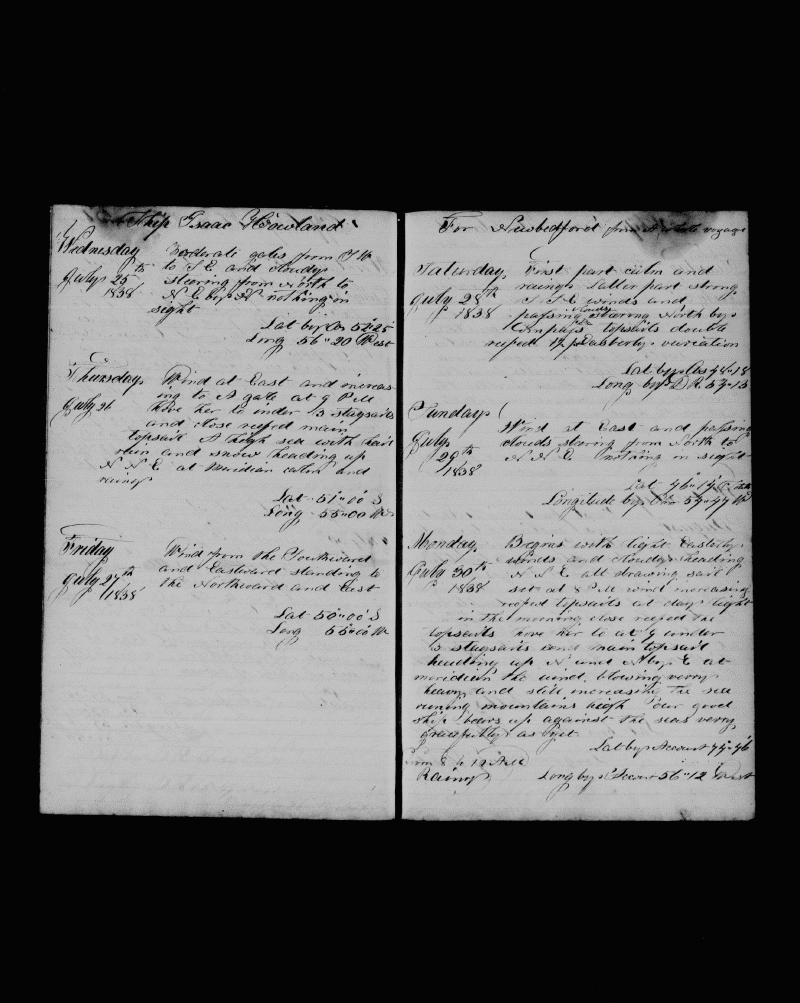 Ship Isaac Howland
Wednesday Moderate gales from S W
to S E and cloudy
July 25th steering from North to
1838 N E by N nothing in
sight
Lat by Obs 52"25
Long 56"20 West
Thursday Wind at East and increas-
ing to A gale at 9 PM
July 26 hove her to under 3 staysails
and close reefed main
topsail A high sea with hail
and snow heading up
N N E at Meridian calm and
rainy
Lat 51"00 S
Long 55"00 W
Friday Wind from the Southward
and Eastward standing to
July 27th the Northward and East
1838
Lat 50"00 S
Long 55"00 W
For Newbedford from A whale voyage
Saturday First part calm and
rainy Latter part strong
July 28th S S E winds and
1838 passing clouds stearing North by
Compass topsails double
reefed Easterly variation
Lat by Obs 48"18
Long by D R 54"15
Sunday Wind at East and passing
July clouds stering from North to
29th N N E nothing in sight
1838
Lat 46"14
Longitude by Chro 54"47 W
Monday Begins with light Easterly
winds and cloudy heading
July 30th N N E all drawing sail
1838 set at 8 PM wind increasing
reefed topsails at day light
in the morning close reefed the
topsails hove her to at 9 under
3 staysails and main topsail
heading up N and N by E at
meridian the wind blowing verry
heavy and still increasing the sea
runing mountains high Our good
ship bears up against the seas verry
gracefully as yet
Lat by Account 44"46
from 8 to 12 AM
Rainy Long by Account 56"12 West